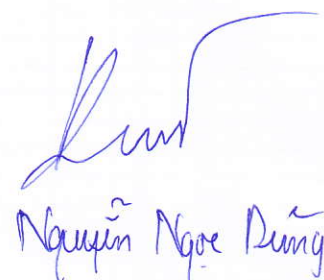 Nguyễn Ngọc Dũng